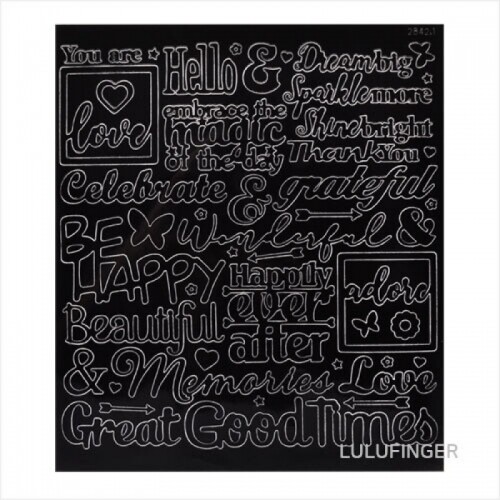 You are
Hello &
Dream big
Sparkle more
love
embrace the
magic
of the day
Shine bright
Thank You
Celebrate & grateful
BE
HAPPY
Wonderful &
Happily
ever
after
adore
Beautiful
& Memories Love
Great Good Times
LULUFINGER